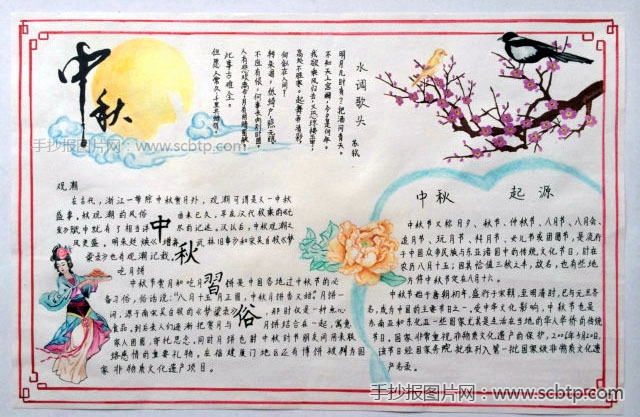 中秋
水调歌头
苏轼
明月几时有？把酒问青天。
不知天上宫阙，今夕是何年。
我欲乘风归去，又恐琼楼玉宇，
高处不胜寒。起舞弄清影，
何似在人间？
转朱阁，低绮户，照无眠。
不应有恨，何事长向别时圆？
人有悲欢离合，月有阴晴圆缺，
此事古难全。
但愿人长久，千里共婵娟。
手抄报图片网 - www.scbtp.com
观潮
在古代，浙江一带除中秋赏月外，观潮可谓是又一中秋
盛事。
中秋习俗
吃月饼
中秋节赏月和吃月饼是中国各地过中秋节的必
备习俗，俗话说："八月十五月正圆，中秋月饼香又甜"月饼一
词，源于南宋吴自牧的《梦粱录》，那时仅是一种点心
食品，到后来人们逐渐把赏月与月饼结合在一起，寓意
家人团圆，寄托思念。同时月饼也是中秋时节朋友间用来联
络感情的重要礼物。在福建厦门地区还有博饼被列为国
家非物质文化遗产项目。
中秋 起源
中秋节又称月夕、秋节、仲秋节、八月节、八月会、
追月节、玩月节、拜月节、女儿节或团圆节，是流行
于中国众多民族与东亚诸国中的传统文化节日，时在
农历八月十五；因其恰值三秋之半，故名，也有些地
方将中秋节定在八月十六。
中秋节始于唐朝初年，盛行于宋朝，至明清时，已与元旦齐
名，成为中国的主要节日之一。受中华文化影响，中秋节也是
东南亚和东北亚一些国家尤其是生活在当地的华人华侨的传统
节日。国家非常重视非物质文化遗产的保护，2006年5月20日，
该节日经国务院批准列入第一批国家级非物质文化遗
产名录。
手抄报图片网
www.scbtp.com